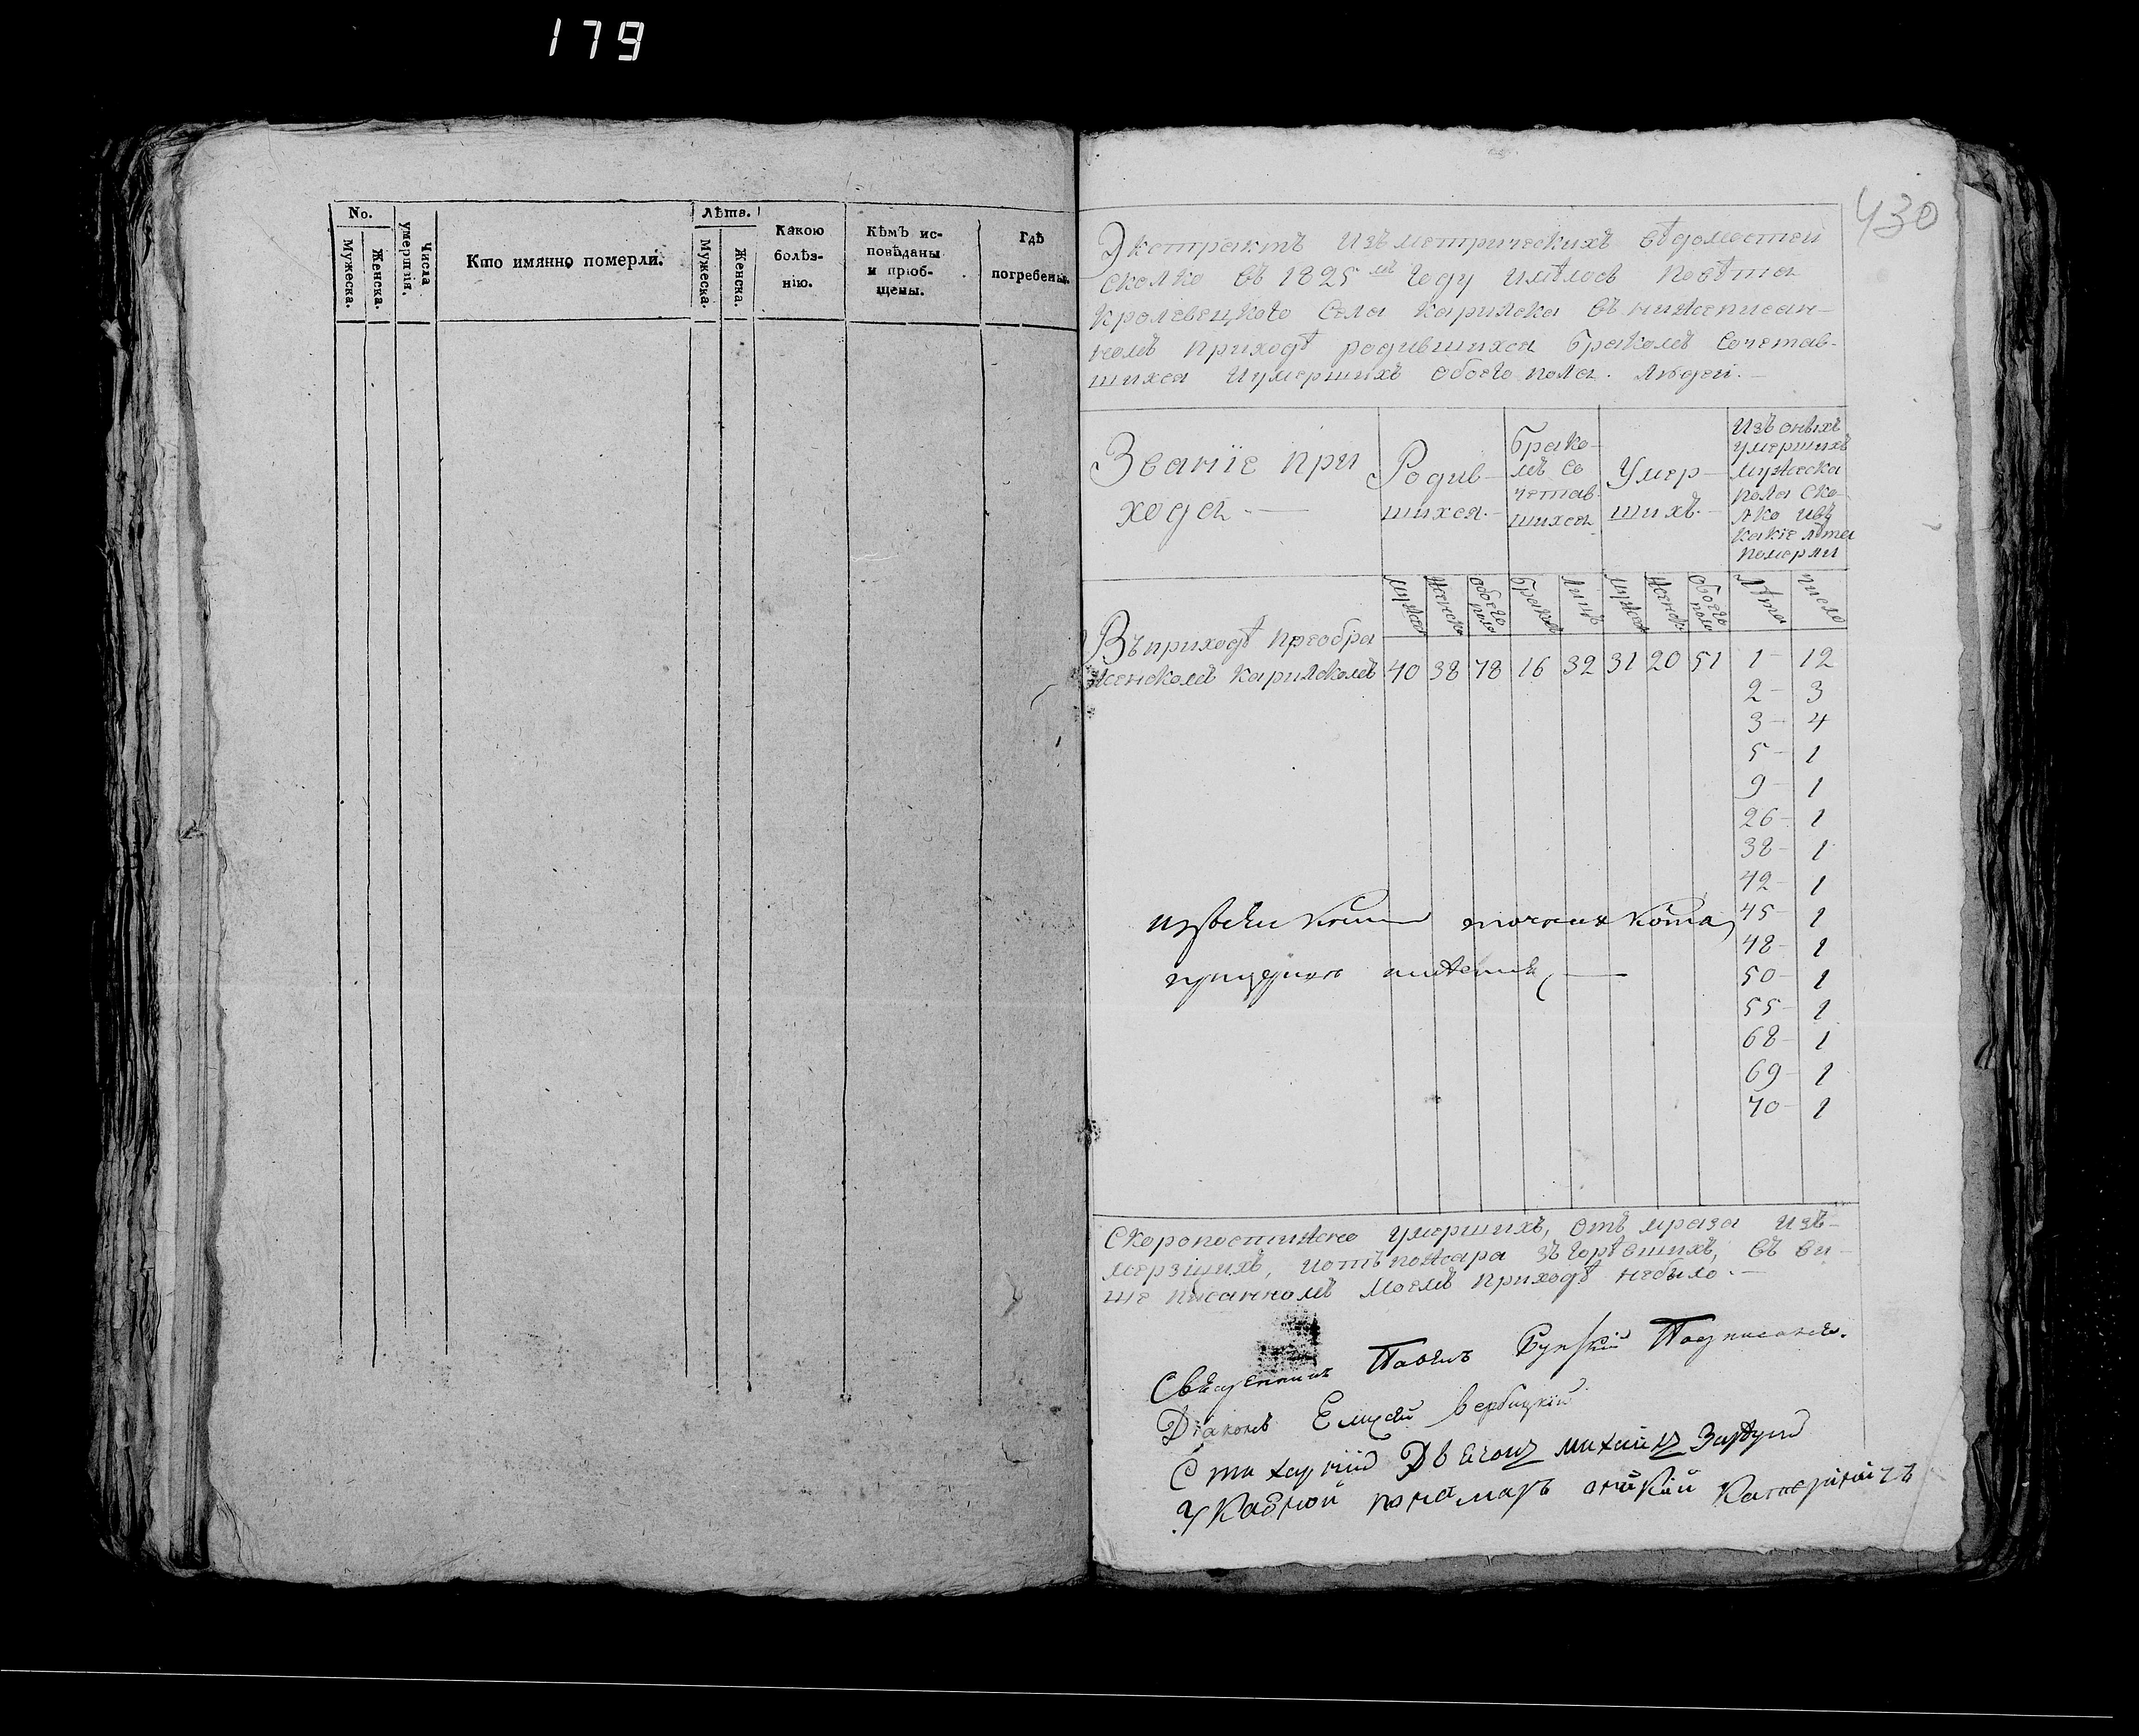 179
No.
Мужеска.
Женска.
Числа умершія.
Кто имянно померли.
Лѣта.
Мужеска.
Женска.
Какою
болѣз-
нію.
Кѣмъ ис-
повѣданы
и пріоб-
щены.
Гдѣ
погребены.
430
Экстрактъ изъ метрическихъ вѣдомостей
сколко въ 1825мъ году имѣлось повѣта
Кролевецкого села Карилска въ нижеписан-
номъ приходѣ родившихся бракомъ сочетав-
шихся и умершихъ обоего пола людей.
Званіе при
хода
Родив-
шихся.
Брако-
мъ со
четав-
шихся
Умер-
шихъ.
Изъ оныхъ
умершихъ
мужеска
пола ско-
лко и въ
какіе лѣта
померли
мужес
женск
обоего пола
браков
лицъ
мужес
женск.
обоего пола
лѣта
число
Въ приходѣ Преобра
женскомъ Карилскомъ 40 38 78 16 32 31 20 51 1 - 12
2 - 3
3 - 4
5 - 1
9 - 1
26 - 1
38 - 1
42 - 1
45 - 1
48 - 1
50 - 1
55 - 1
68 - 1
69 - 1
70 - 1
Скоропостижно умершихъ, отъ мраза изъ-
мерзшихъ, и отъ пожара згорѣвшихъ, въ ви-
ше писанномъ моемъ приходѣ небыло.
Священникъ Павелъ Подписался.
Діаконъ Елисей Вербицкій
Дьячокъ Михаилъ
Указной пономарь